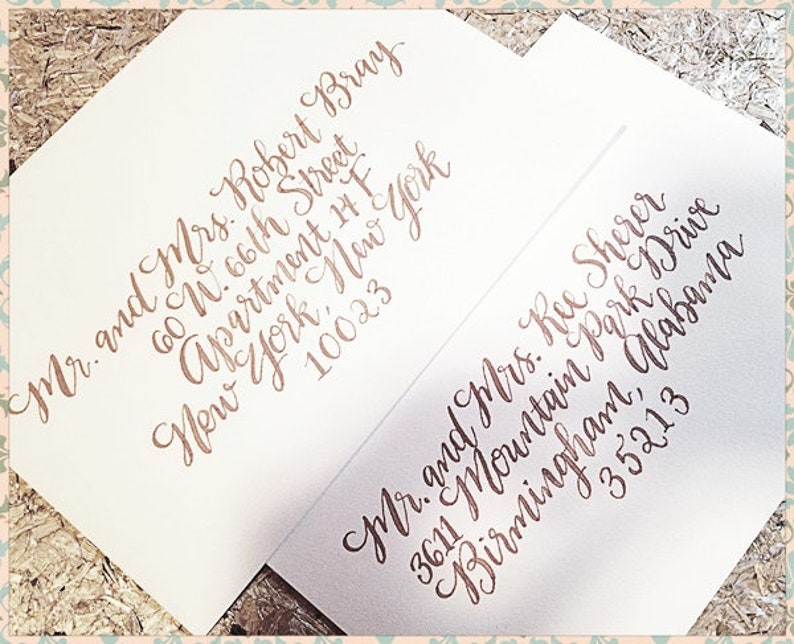 Mr. and Mrs. Robert Bray
60 W. 66th Street
Apartment 14 F
New York, New York
10023
Mr. and Mrs. Kee Sherer
3611 Mountain Park Drive
Birmingham, Alabama
35213